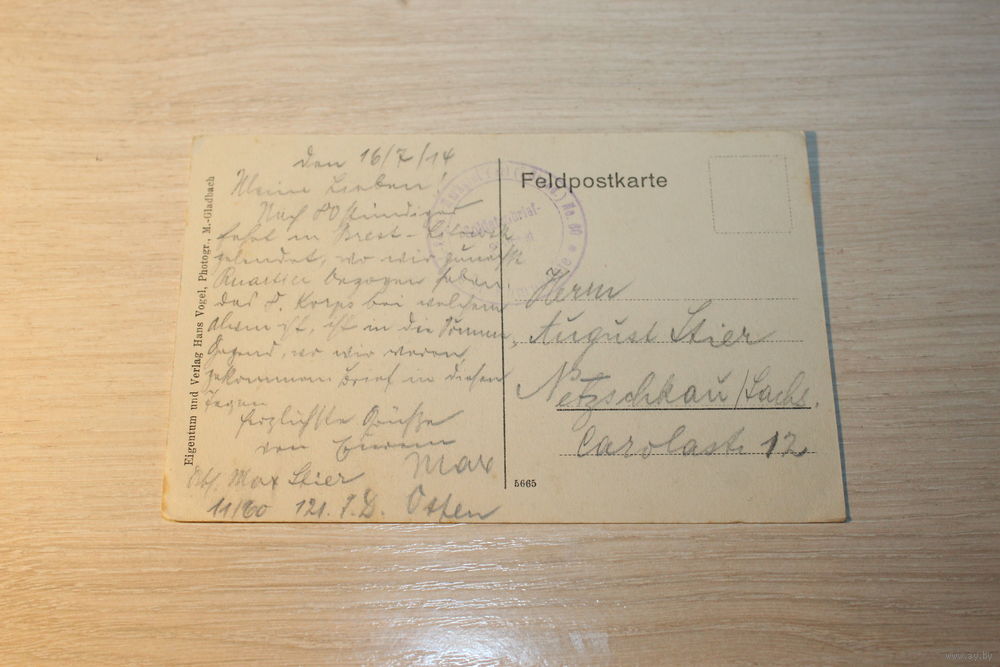 den 16/7/14
Meine Lieben!
Nach 80 stündiger
fahrt in Brest-Litowsk
gelandet, wo wir zunächst
Quartier bezogen haben,
das 8. Korps bei welchem
ist, ist in die
Gegend, wo wir waren,
gekommen Brief in diesen
Tagen
herzlichste Grüße
von Eurem
Max
Abs. Max Stier
11/60 121. I.D. Osten
Eigentum und Verlag Hans Vogel, Photogr., M.-Gladbach
Feldpostkarte
No. 60
Soldatenbrief-
Herrn
August Stier
Netzschkau/Sachs.
Carolastr. 12
5665
www.ay.by